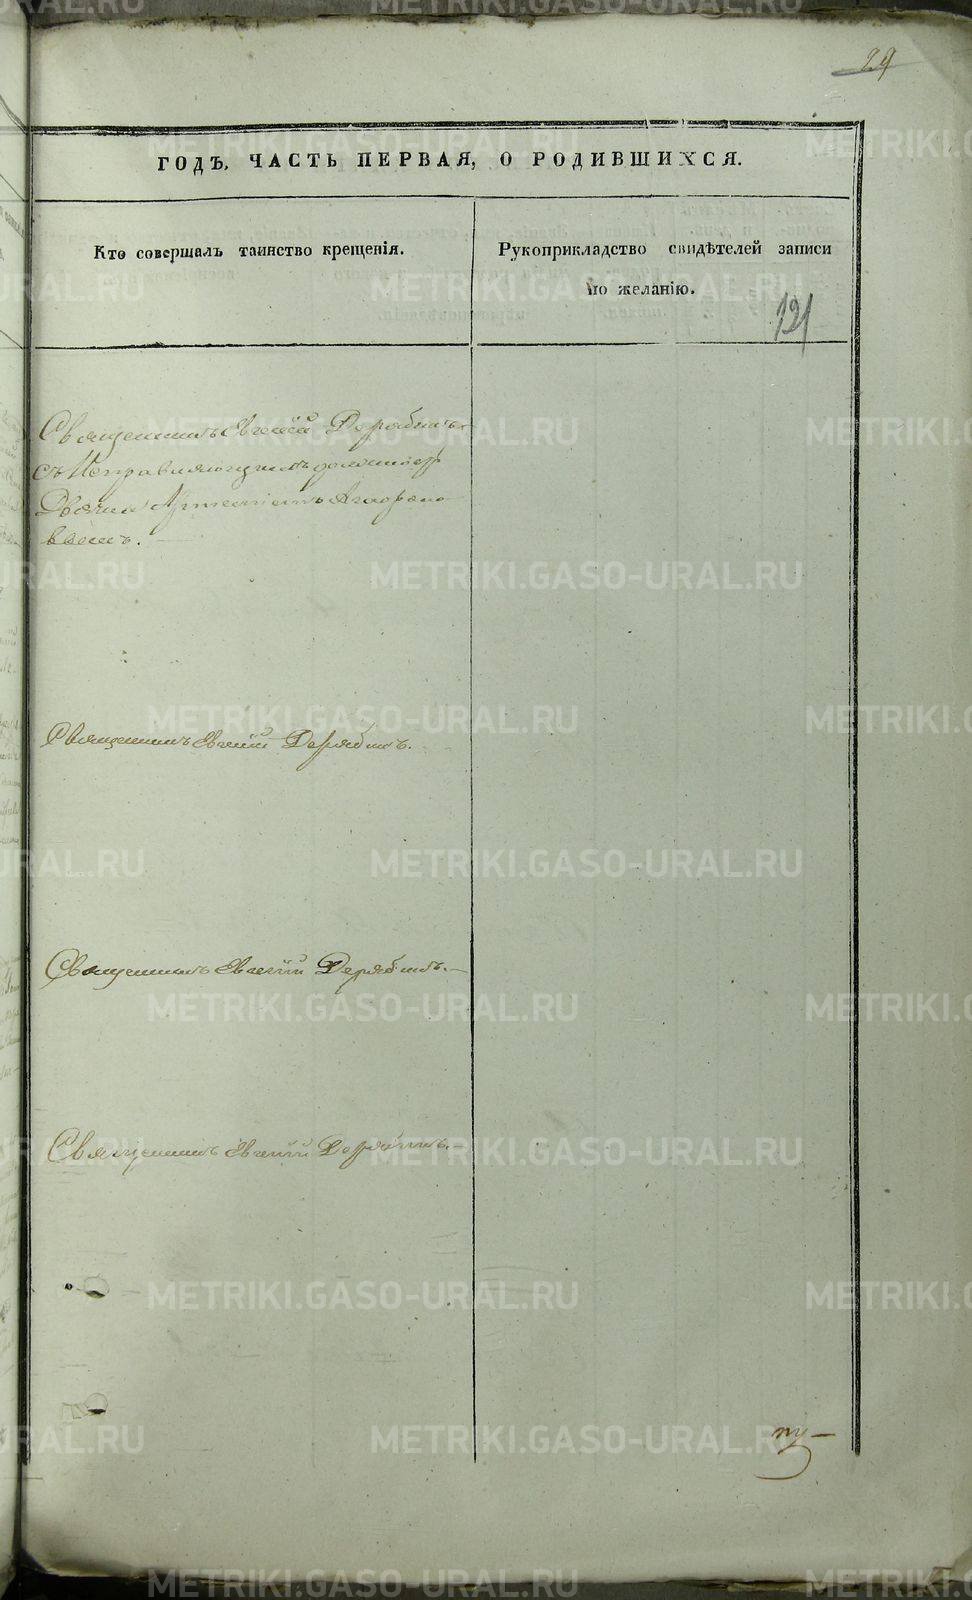 29
ГОДЪ, ЧАСТЬ ПЕРВАЯ, О РОДИВШИХСЯ.
Кто совершалъ таинство крещенія.
Рукоприкладство свидѣтелей записи
по желанію.
121
Священникъ Евгеній Дерябинъ
съ Исправляющимъ должность
Дьячка
вымъ.
Священникъ Евгеній Дерябинъ.
Священникъ Евгеній Дерябинъ.—
Священникъ Евгеній Дерябинъ.—
METRIKI.GASO-URAL.RU